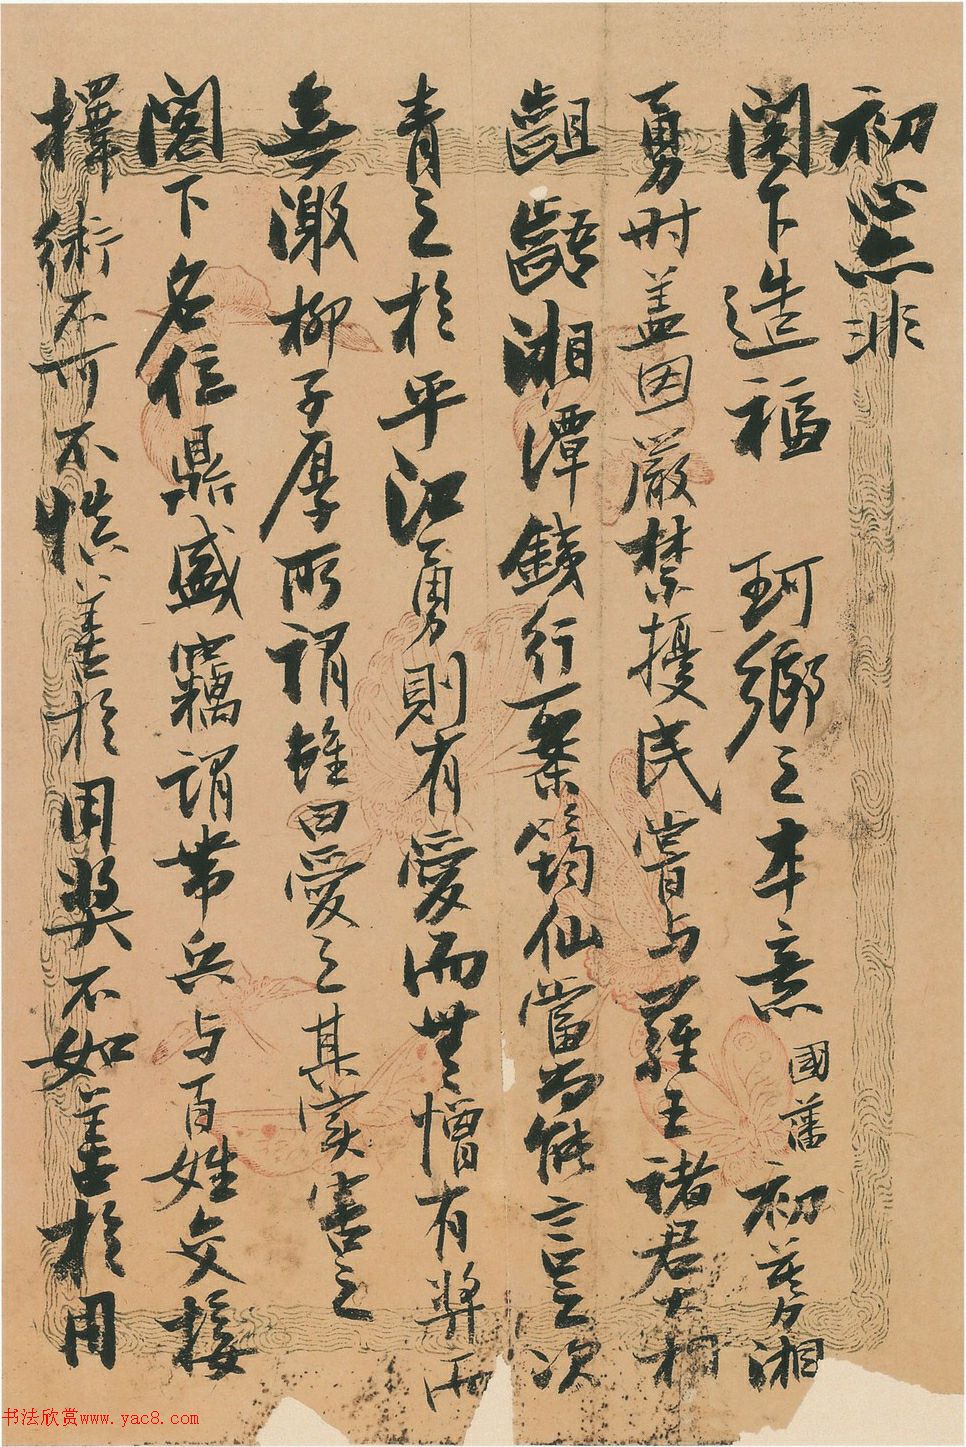 初心亦非
閣下造福 珂鄉之本意國藩初募湘
勇时蓋因嚴禁擾民嘗与羅王諸君大相
齟齬湘潭錢行一案筠仙當为能言之次
青之於平江勇則有愛而無憎有獎而
無激柳子厚所謂雖曰愛之其实害之
閣下名位鼎盛竊謂帶兵与百姓交接
擇術不可不慎善於用獎不如善於用
书法欣赏www.yac8.com